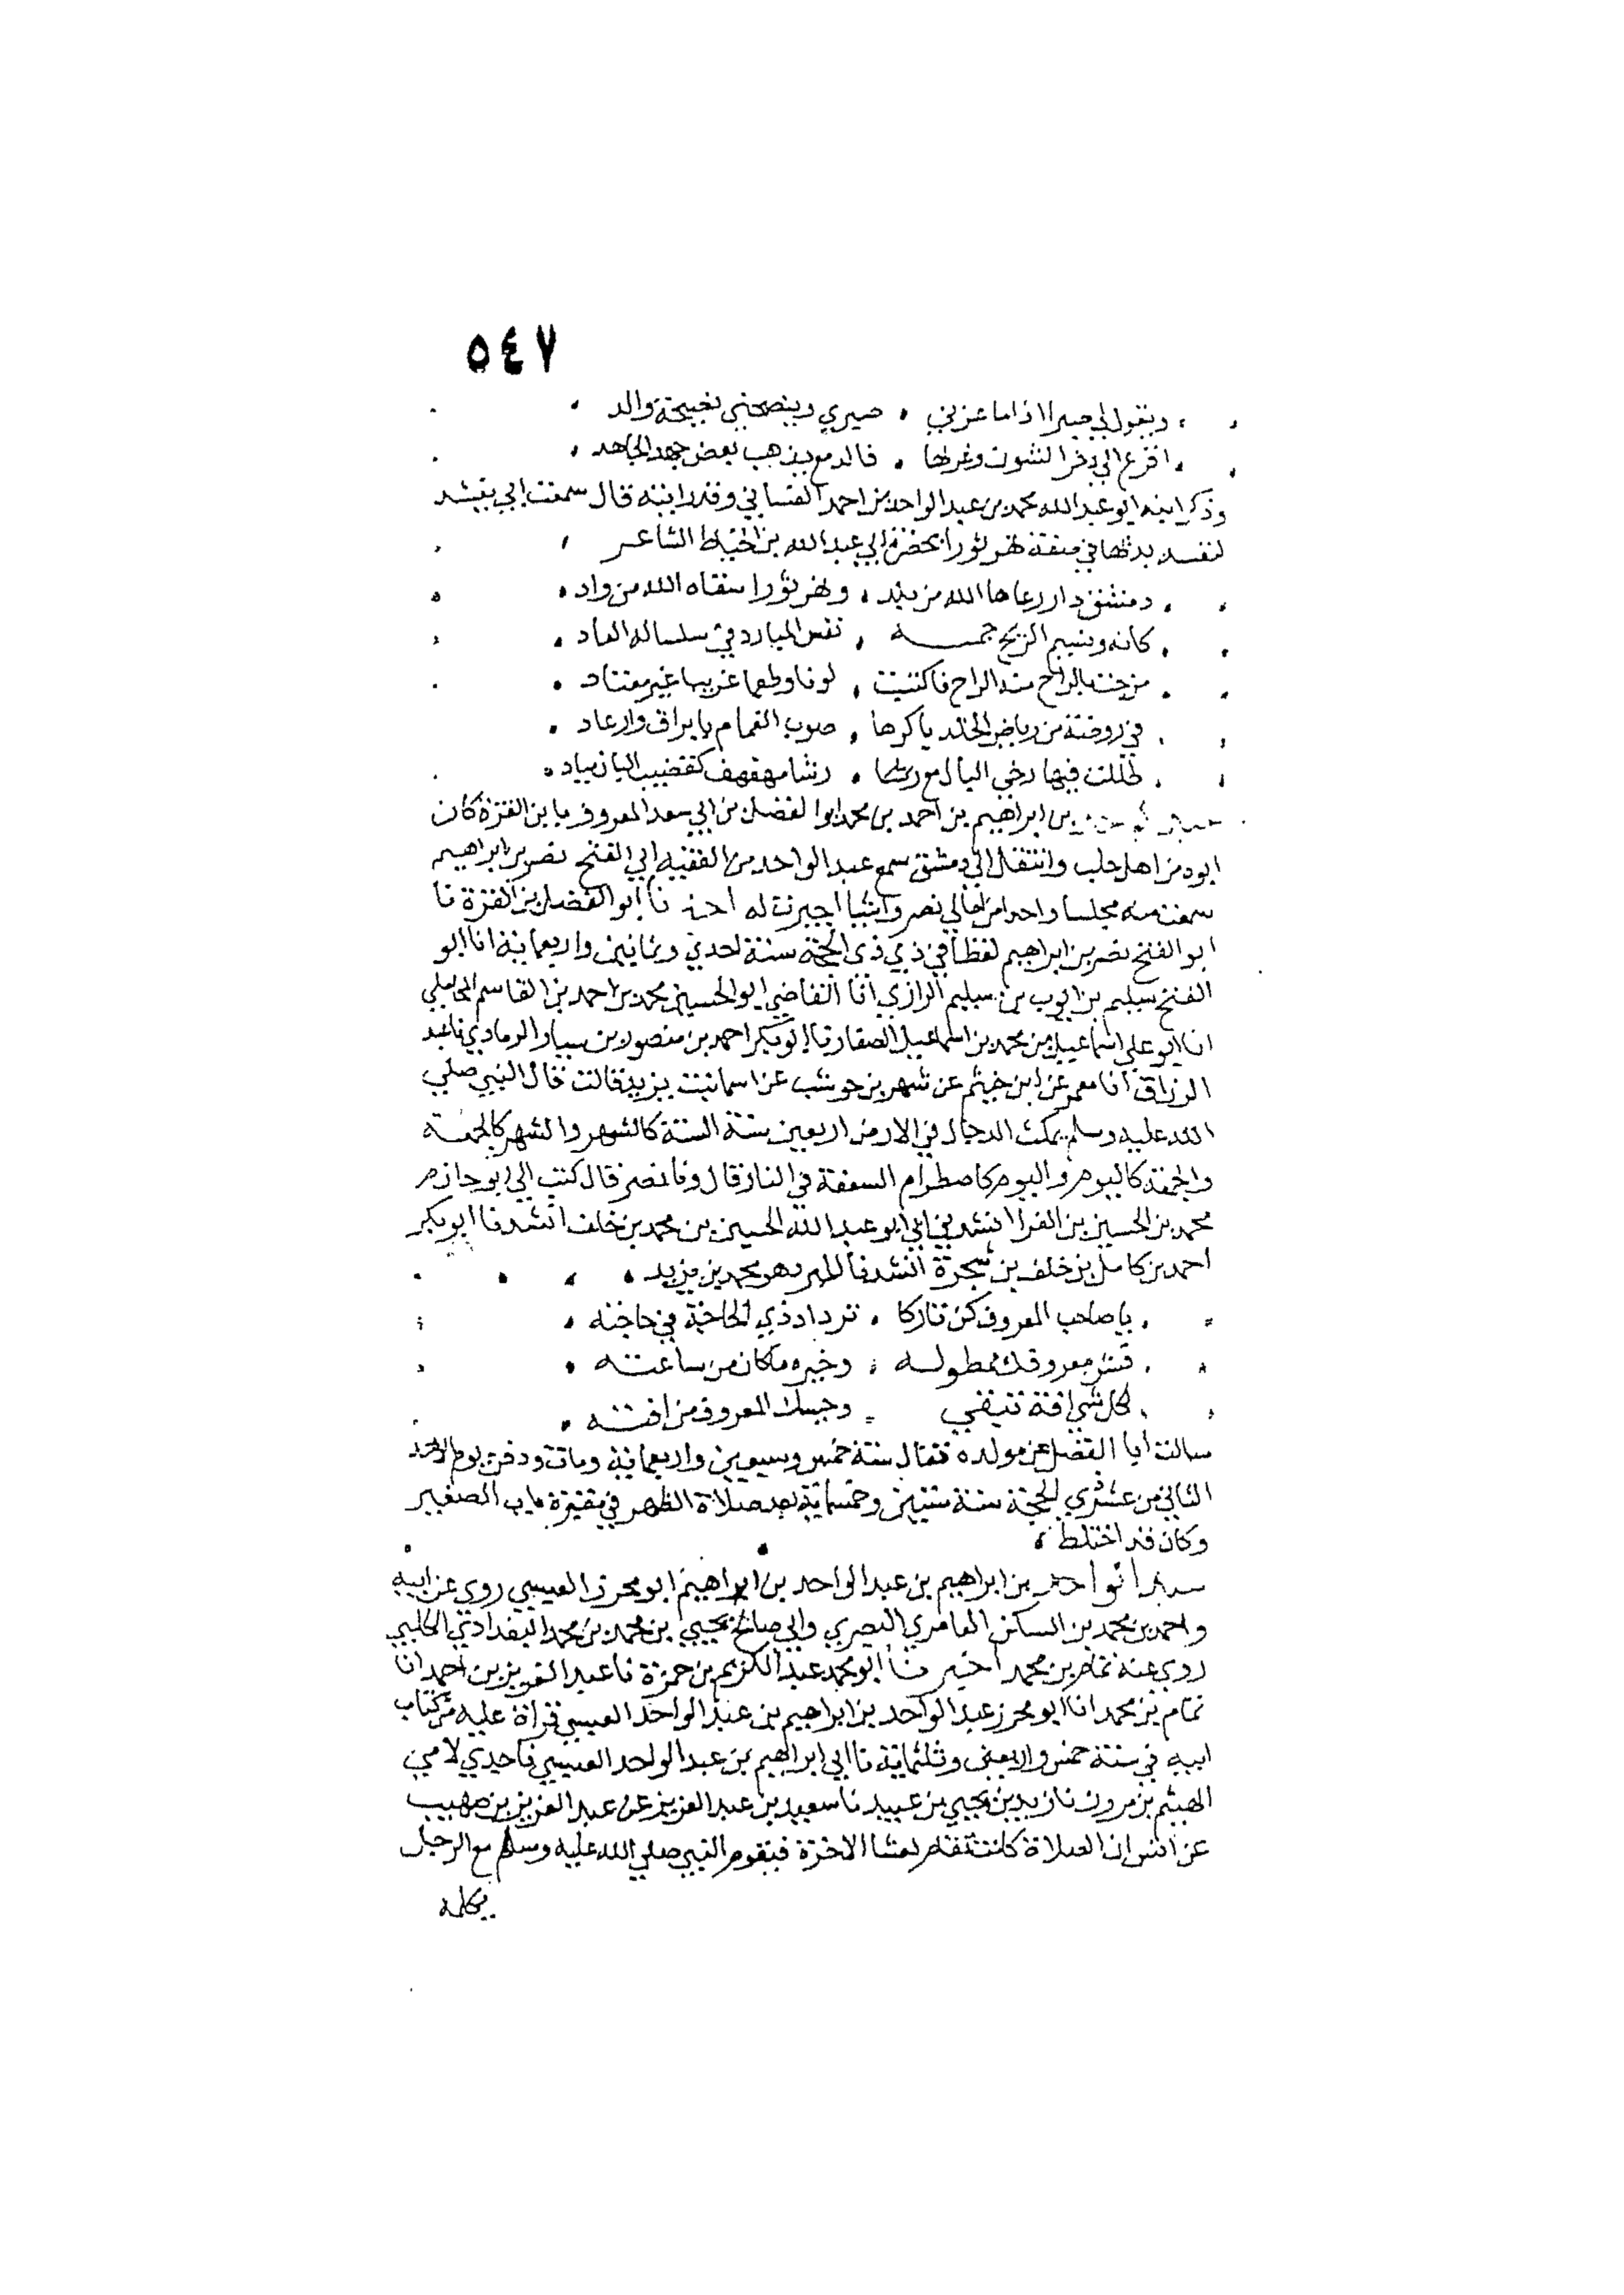 ٥٤٧
ويقول لي صبرا اذا ما عزني صبري وينصحني نصيحة والد
افزع الي ذخر الشون وغربها فالدمع يذهب بعض جهد الجاهد
وذكر ابنه ابو عبد الله محمد بن عبد الواحد بن احمد الغساني وقد رايته قال سمعت ابي ينشد
لنفسه بديها في صفة نهر ثورا بحضرة ابي عبد الله بن الخياط الشاعر
دمشق دار رعاها الله من بلد ونهر ثورا سقاه الله من واد
كانه ونسيم الريح جمشه نقس المبارد في سلساله الغاد
مزجت بالراح منه الراح فاكتست لونا وطعما غريبا غير معتاد
في روضة من رياض الخلد باكرها صوب الغمام بابراق وارعاد
ظللت فيها رخي البال مرتشفا رشا مهفهف كقضيب البان مياد
بن ابراهيم بن احمد بن محمد ابو الفضل بن ابي سعد المعروف بابن القزة كان
ابوه من اهل حلب وانتقل الي دمشق سمع عبد الواحد من الفقيه ابي الفتح نصر بن ابراهيم
سمعت منه مجلسا واحدا من امالي نصر واشيا اجيزت له نا ابو الفضل بن القزة نا
ابو الفتح نصر بن ابراهيم لفظا في ذي الحجة سنة احدي وثمانين واربعماية انا ابو
الفتح سليم بن ايوب بن سليم الرازي انا القاضي ابو الحسين محمد بن احمد بن القاسم المحاملي
انا ابو علي اسماعيل بن محمد بن اسماعيل الصفار نا ابو بكر احمد بن منصور بن سيار الرمادي نا عبد
الرزاق انا معمر عن ابن خيثم عن شهر بن حوشب عن اسما بنت يزيد قالت قال النبي صلي
الله عليه وسلم يمكث الدجال في الارض اربعين سنة السنة كالشهر والشهر كالجمعة
والجمعة كاليوم واليوم كاضطرام السعفة في النار قال ونا نصر قال كتب الي ابو حازم
محمد بن الحسين بن الفرا انشدني ابي ابو عبد الله الحسين بن محمد بن خلف انشدنا ابو بكر
احمد بن كامل بن خلف بن شجرة انشدنا المبرد هو محمد بن يزيد
يا صاحب المعروف كن تاركا ترداد ذي الحاجة في حاجته
فشر معروفك ممطوله وخيره ما كان من ساعته
لكل شي افة تتقي وحبسك المعروف من افته
سالت ابا الفضل عن مولده فقال سنة خمس وسبعين واربعماية ومات ودفن يوم الاحد
الثاني من عشري الحجة سنة ستين وخمسماية بعد صلاة الظهر في مقبرة باب الصغير
وكان قد اختلط
عبد الواحد بن ابراهيم بن عبد الواحد بن ابراهيم ابو محرز العبسي روي عن ابيه
واحمد بن محمد بن السكن العامري البصري وابي صالح يحيي بن محمد بن محمد البغدادي الكلبي
روي عنه تمام بن محمد اخبرنا ابو محمد عبد الكريم بن حمزة نا عبد العزيز بن احمد انا
تمام بن محمد انا ابو محرز عبد الواحد بن ابراهيم بن عبد الواحد العبسي قراة عليه من كتاب
ابيه في سنة خمس واربعين وثلثماية نا ابي ابراهيم بن عبد الواحد العبسي نا جدي لامي
الهيثم بن مرون نا زيد بن يحيي بن عبيد نا سعيد بن عبد العزيز عن عبد العزيز بن صهيب
عن انس ان الصلاة كانت تقام لعشا الاخرة فيقوم النبي صلي الله عليه وسلم مع الرجل
يكلمه